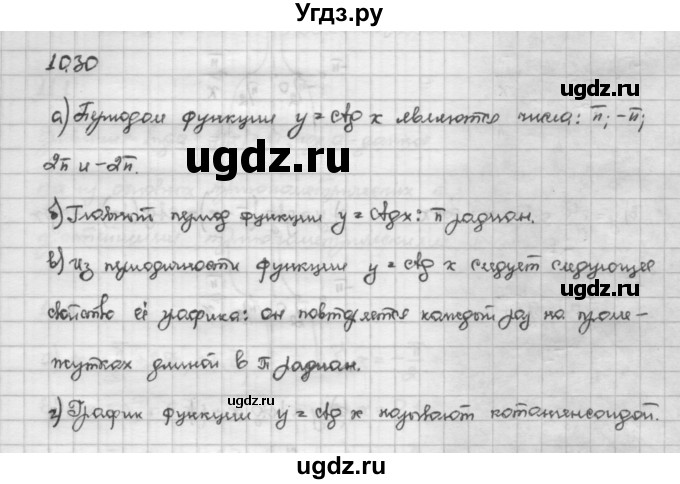 Угдз.ру
10.30
а) Периодом функции y = ctg x являются числа: π; -π;
2π и -2π.
б) Главный период функции y = ctgx: π радиан.
в) Из периодичности функции y = ctg x следует следующее
свойство её графика: он повторяется каждый раз на проме-
жутках длиной в π радиан.
г) График функции y = ctg x называют котангенсоидой.
ugdz.ru
ugdz.ru
ugdz.ru
ugdz.ru
ugdz.ru
ugdz.ru
ugdz.ru